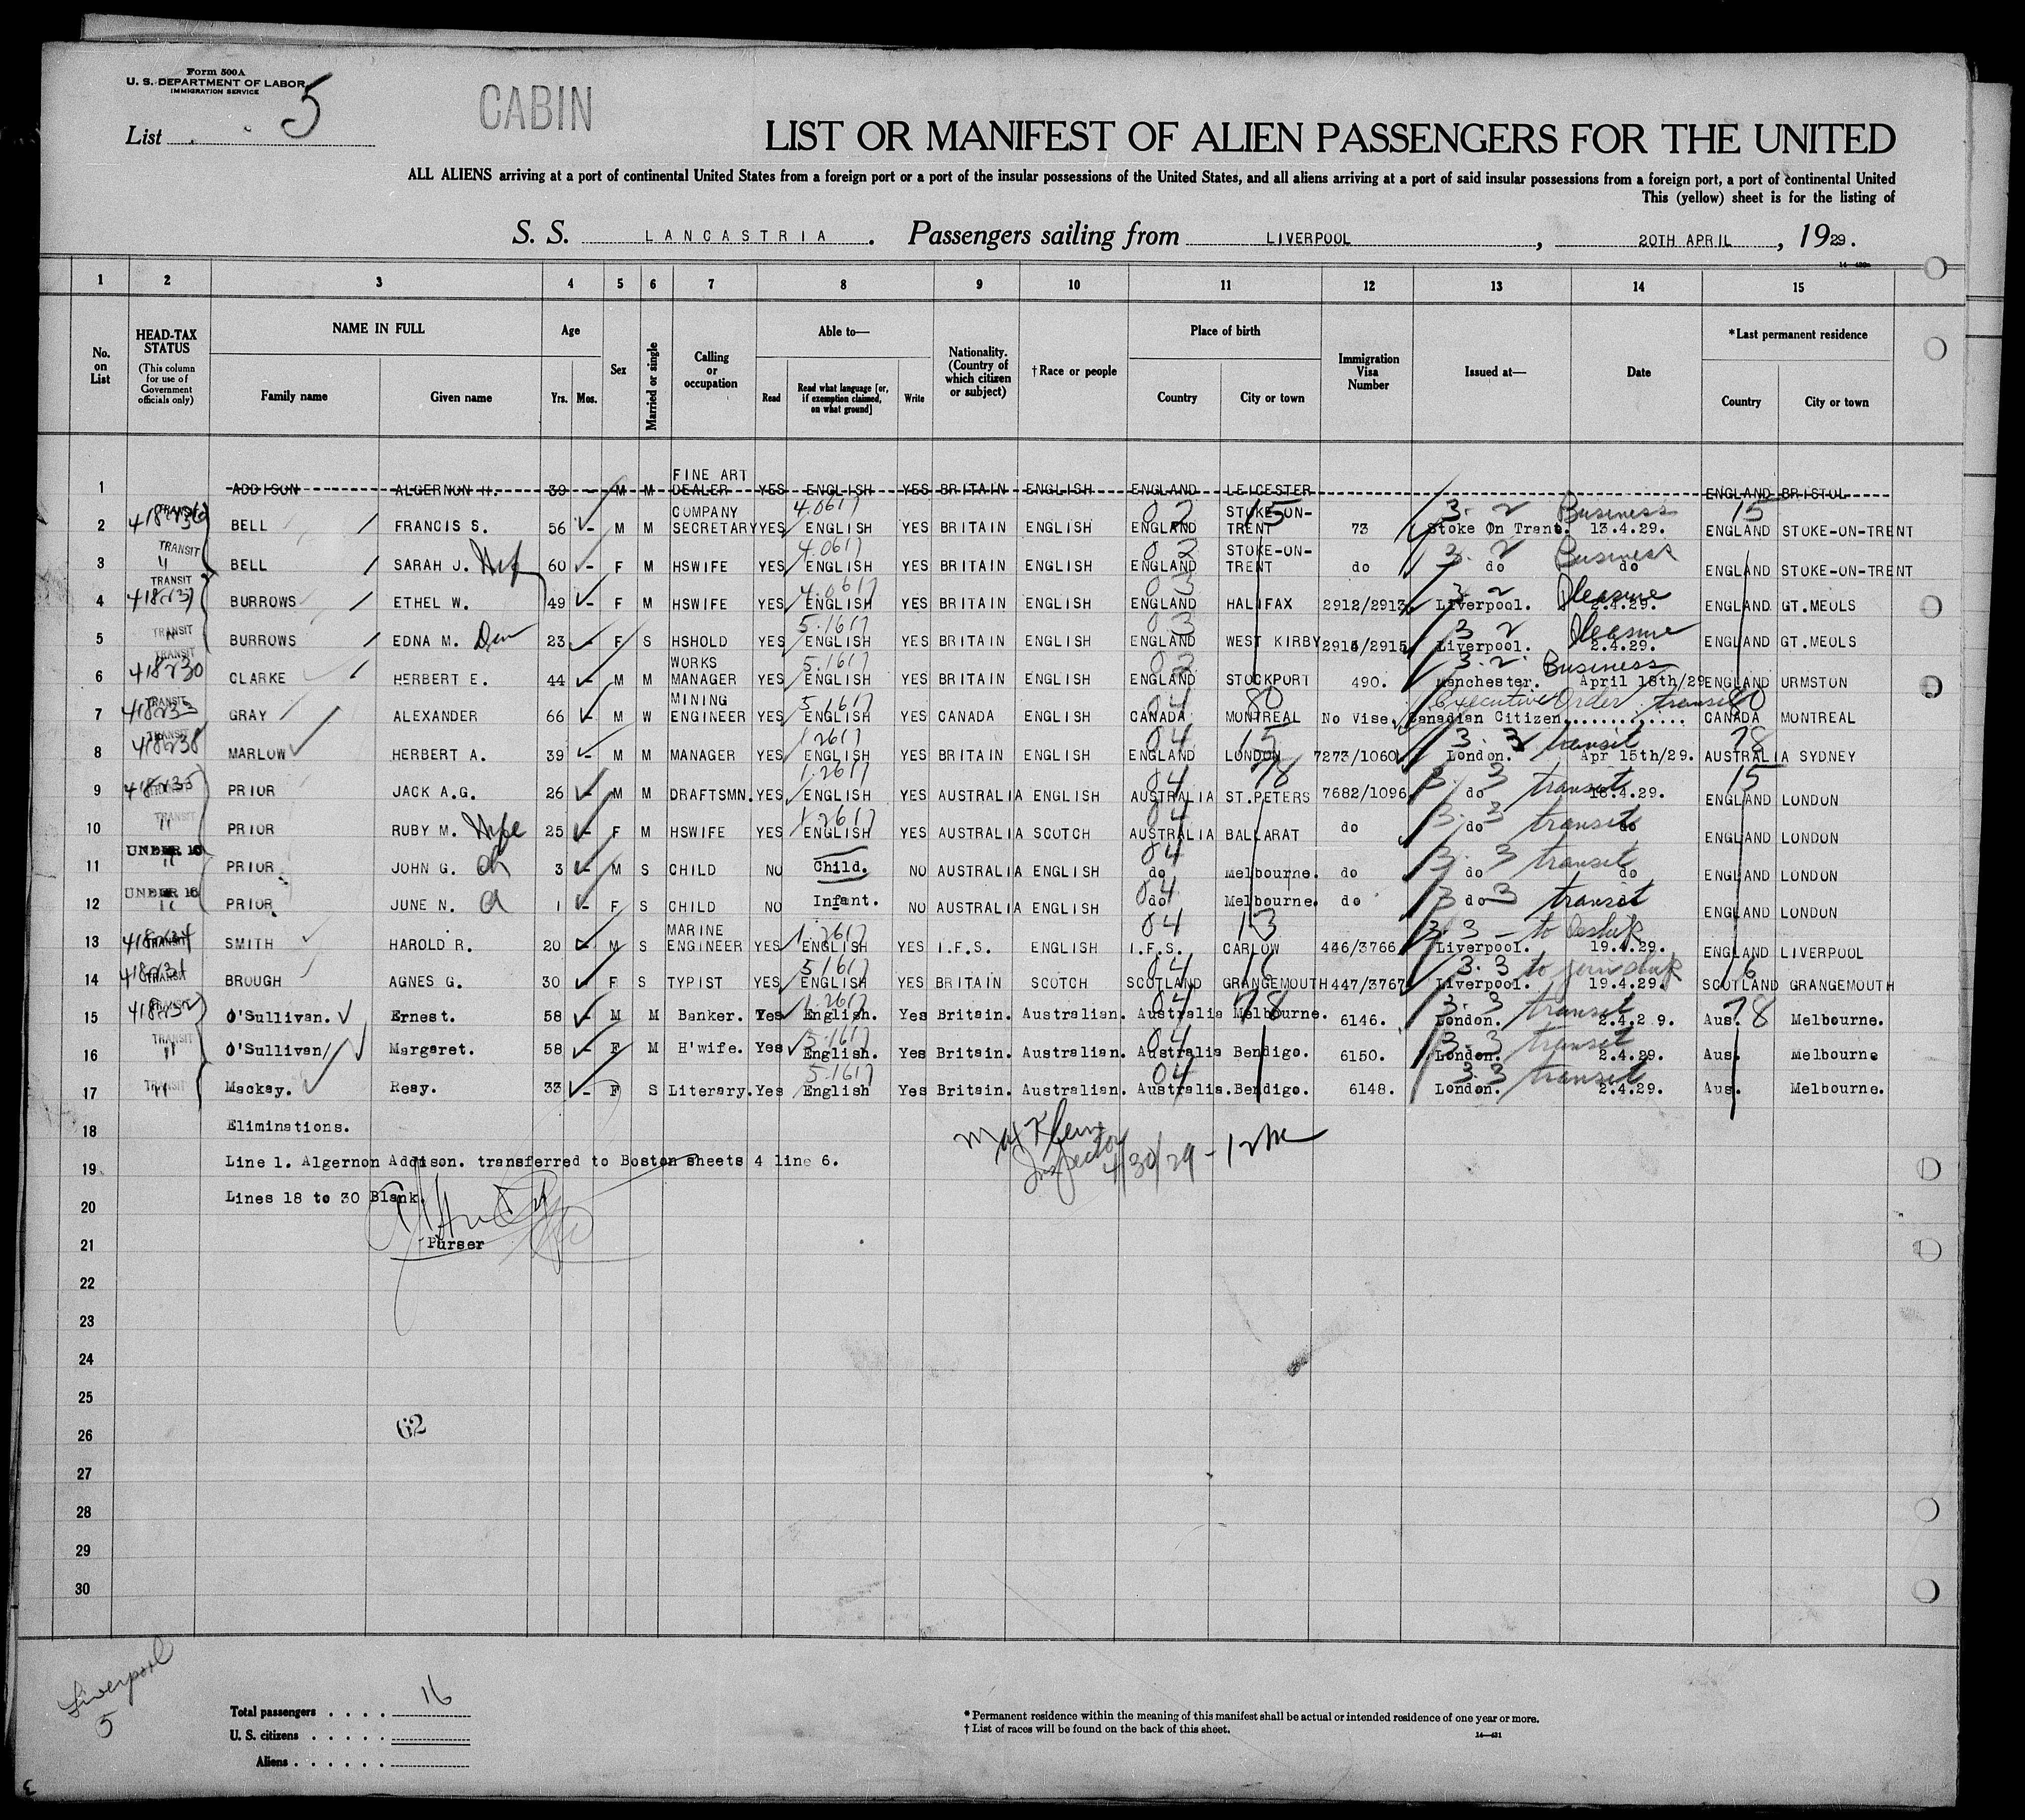 Form 500A
U. S. DEPARTMENT OF LABOR
IMMIGRATION SERVICE
List 5
CABIN
LIST OR MANIFEST OF ALIEN PASSENGERS FOR THE UNITED
ALL ALIENS arriving at a port of continental United States from a foreign port or a port of the insular possessions of the United States, and all aliens arriving at a port of said insular possessions from a foreign port, a port of continental United
This (yellow) sheet is for the listing of
S. S. LANCASTRIA. Passengers sailing from LIVERPOOL, 20TH APRIL, 1929.
1 2 3 4 5 6 7 8 9 10 11 12 13 14 15
No. on List
HEAD-TAX STATUS
(This column for use of Government officials only)
NAME IN FULL
Family name
Given name
Age
Yrs. Mos.
Sex
Married or single
Calling or occupation
Able to—
Read
Read what language [or, if exemption claimed, on what ground]
Write
Nationality. (Country of which citizen or subject)
†Race or people
Place of birth
Country
City or town
Immigration Visa Number
Issued at—
Date
*Last permanent residence
Country
City or town
1 ADDISON ALGERNON H. 39 - M M FINE ART DEALER YES ENGLISH YES BRITAIN ENGLISH ENGLAND LEICESTER ENGLAND BRISTOL
2 TRANSIT BELL FRANCIS S. 56 - M M COMPANY SECRETARY YES 4.0617 ENGLISH YES BRITAIN ENGLISH 03 ENGLAND 15 STOKE-ON-TRENT 73 3-2 Stoke On Trent. Business 13.4.29. 15 ENGLAND STOKE-ON-TRENT
3 TRANSIT " BELL SARAH J. Wife 60 - F M HSWIFE YES 4.0617 ENGLISH YES BRITAIN ENGLISH 03 ENGLAND STOKE-ON-TRENT do 3-2 do Business do ENGLAND STOKE-ON-TRENT
4 TRANSIT BURROWS ETHEL W. 49 - F M HSWIFE YES 4.0617 ENGLISH YES BRITAIN ENGLISH 03 ENGLAND HALIFAX 2912/2913 3-2 Liverpool. Pleasure 2.4.29. ENGLAND GT.MEOLS
5 TRANSIT " BURROWS EDNA M. Dau 23 - F S HSHOLD YES 5.1617 ENGLISH YES BRITAIN ENGLISH 03 ENGLAND WEST KIRBY 2914/2915 3 2 Liverpool. Pleasure 2.4.29. ENGLAND GT.MEOLS
6 TRANSIT 418230 CLARKE HERBERT E. 44 - M M WORKS MANAGER YES 5.1617 ENGLISH YES BRITAIN ENGLISH 03 ENGLAND STOCKPORT 490. 3.2. Manchester. Business April 18th/29 ENGLAND URMSTON
7 TRANSIT 418233 GRAY ALEXANDER 66 - M W MINING ENGINEER YES 5.1617 ENGLISH YES CANADA ENGLISH 04 CANADA 80 MONTREAL No Vise. Executive Order transit Canadian Citizen............. 80 CANADA MONTREAL
8 TRANSIT 418238 MARLOW HERBERT A. 39 - M M MANAGER YES 1.2617 ENGLISH YES BRITAIN ENGLISH 04 ENGLAND 15 LONDON 7273/1060 3.3 London. transit Apr 15th/29. 78 AUSTRALIA SYDNEY
9 TRANSIT 418235 PRIOR JACK A.G. 26 - M M DRAFTSMN. YES 1.2617 ENGLISH YES AUSTRALIA ENGLISH 04 AUSTRALIA 78 ST.PETERS 7682/1096 3.3 do transit 18.4.29. 15 ENGLAND LONDON
10 TRANSIT " PRIOR RUBY M. Wife 25 - F M HSWIFE YES 1.2617 ENGLISH YES AUSTRALIA SCOTCH 04 AUSTRALIA BALLARAT do 3.3 do transit do ENGLAND LONDON
11 UNDER 16 " PRIOR JOHN G. ch 3 - M S CHILD NO Child. NO AUSTRALIA ENGLISH 04 do Melbourne. do 3.3 do transit do ENGLAND LONDON
12 UNDER 16 " PRIOR JUNE N. 1 - F S CHILD NO Infant. NO AUSTRALIA ENGLISH 04 do Melbourne. do 3 3 do transit do ENGLAND LONDON
13 TRANSIT 418234 SMITH HAROLD R. 20 - M S MARINE ENGINEER YES 1.2617 ENGLISH YES I.F.S. ENGLISH 04 I.F.S. 13 CARLOW 446/3766 3 3 Liverpool. 19.4.29. ENGLAND LIVERPOOL
14 TRANSIT 418231 BROUGH AGNES G. 30 - F S TYPIST YES 5.1617 ENGLISH YES BRITAIN SCOTCH 04 SCOTLAND 16 GRANGEMOUTH 447/3767 3.3 Liverpool. to join ship 19.4.29. 16 SCOTLAND GRANGEMOUTH
15 TRANSIT 418232 O'Sullivan. Ernest. 58 - M M Banker. Yes 1.2617 English. Yes Britain. Australian. 04 Australia 78 Melbourne. 6146. 3.3 London. transit 2.4.2 9. Aus. 78 Melbourne.
16 TRANSIT " O'Sullivan/ Margaret. 58 - F M H'wife. Yes 5.1617 English. Yes Britain. Australian. 04 Australia Bendigo. 6150. 3.3 London. transit 2.4.29. Aus. Melbourne
17 TRANSIT " Mackay. Reay. 33 - F S Literary. Yes 5.1617 English Yes Britain. Australian. 04 Australia. Bendigo. 6148. 3.3 London. transit 2.4.29. Aus. Melbourne.
18 Eliminations.
19 Line 1. Algernon Addison. transferred to Boston sheets 4 line 6.
Inspector 4/30/29 -
20 Lines 18 to 30 Blank.
21 Purser
22
23
24
25
26
62
27
28
29
30
Liverpool
5
Total passengers . . . . 16
U. S. citizens . . . . .
Aliens . . . . . .
* Permanent residence within the meaning of this manifest shall be actual or intended residence of one year or more.
† List of races will be found on the back of this sheet.
14—421